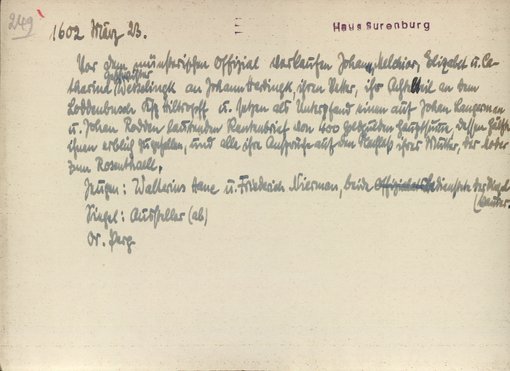 249
1602 März 23.
Haus Surenburg
Vor dem münsterischen Offizial verkaufen Johan, Melchior, Elizabet u. Ca-
tharina Geschwister Weddelingk an Johann Hardingk, ihren Vetter, ihr Achtteil an dem
Loddenbusch Ksp. Hiltropff u. setzen als Unterpfand einen auf Johan Langerman
u. Johan Rodden lautenden Rentenbrief von 400 Goldgulden Hauptsumme, dessen Hälfte
ihnen erblich zugefallen, und alle ihre Ansprüche auf den Nachlaß ihrer Mutter, der
zum Rosenthall.
Zeugen: Wallerius Hane u. Friederich Nierman, beide Bedienstete der Siegel-
kammer.
Siegel: Aussteller (ab)
Or. Perg.